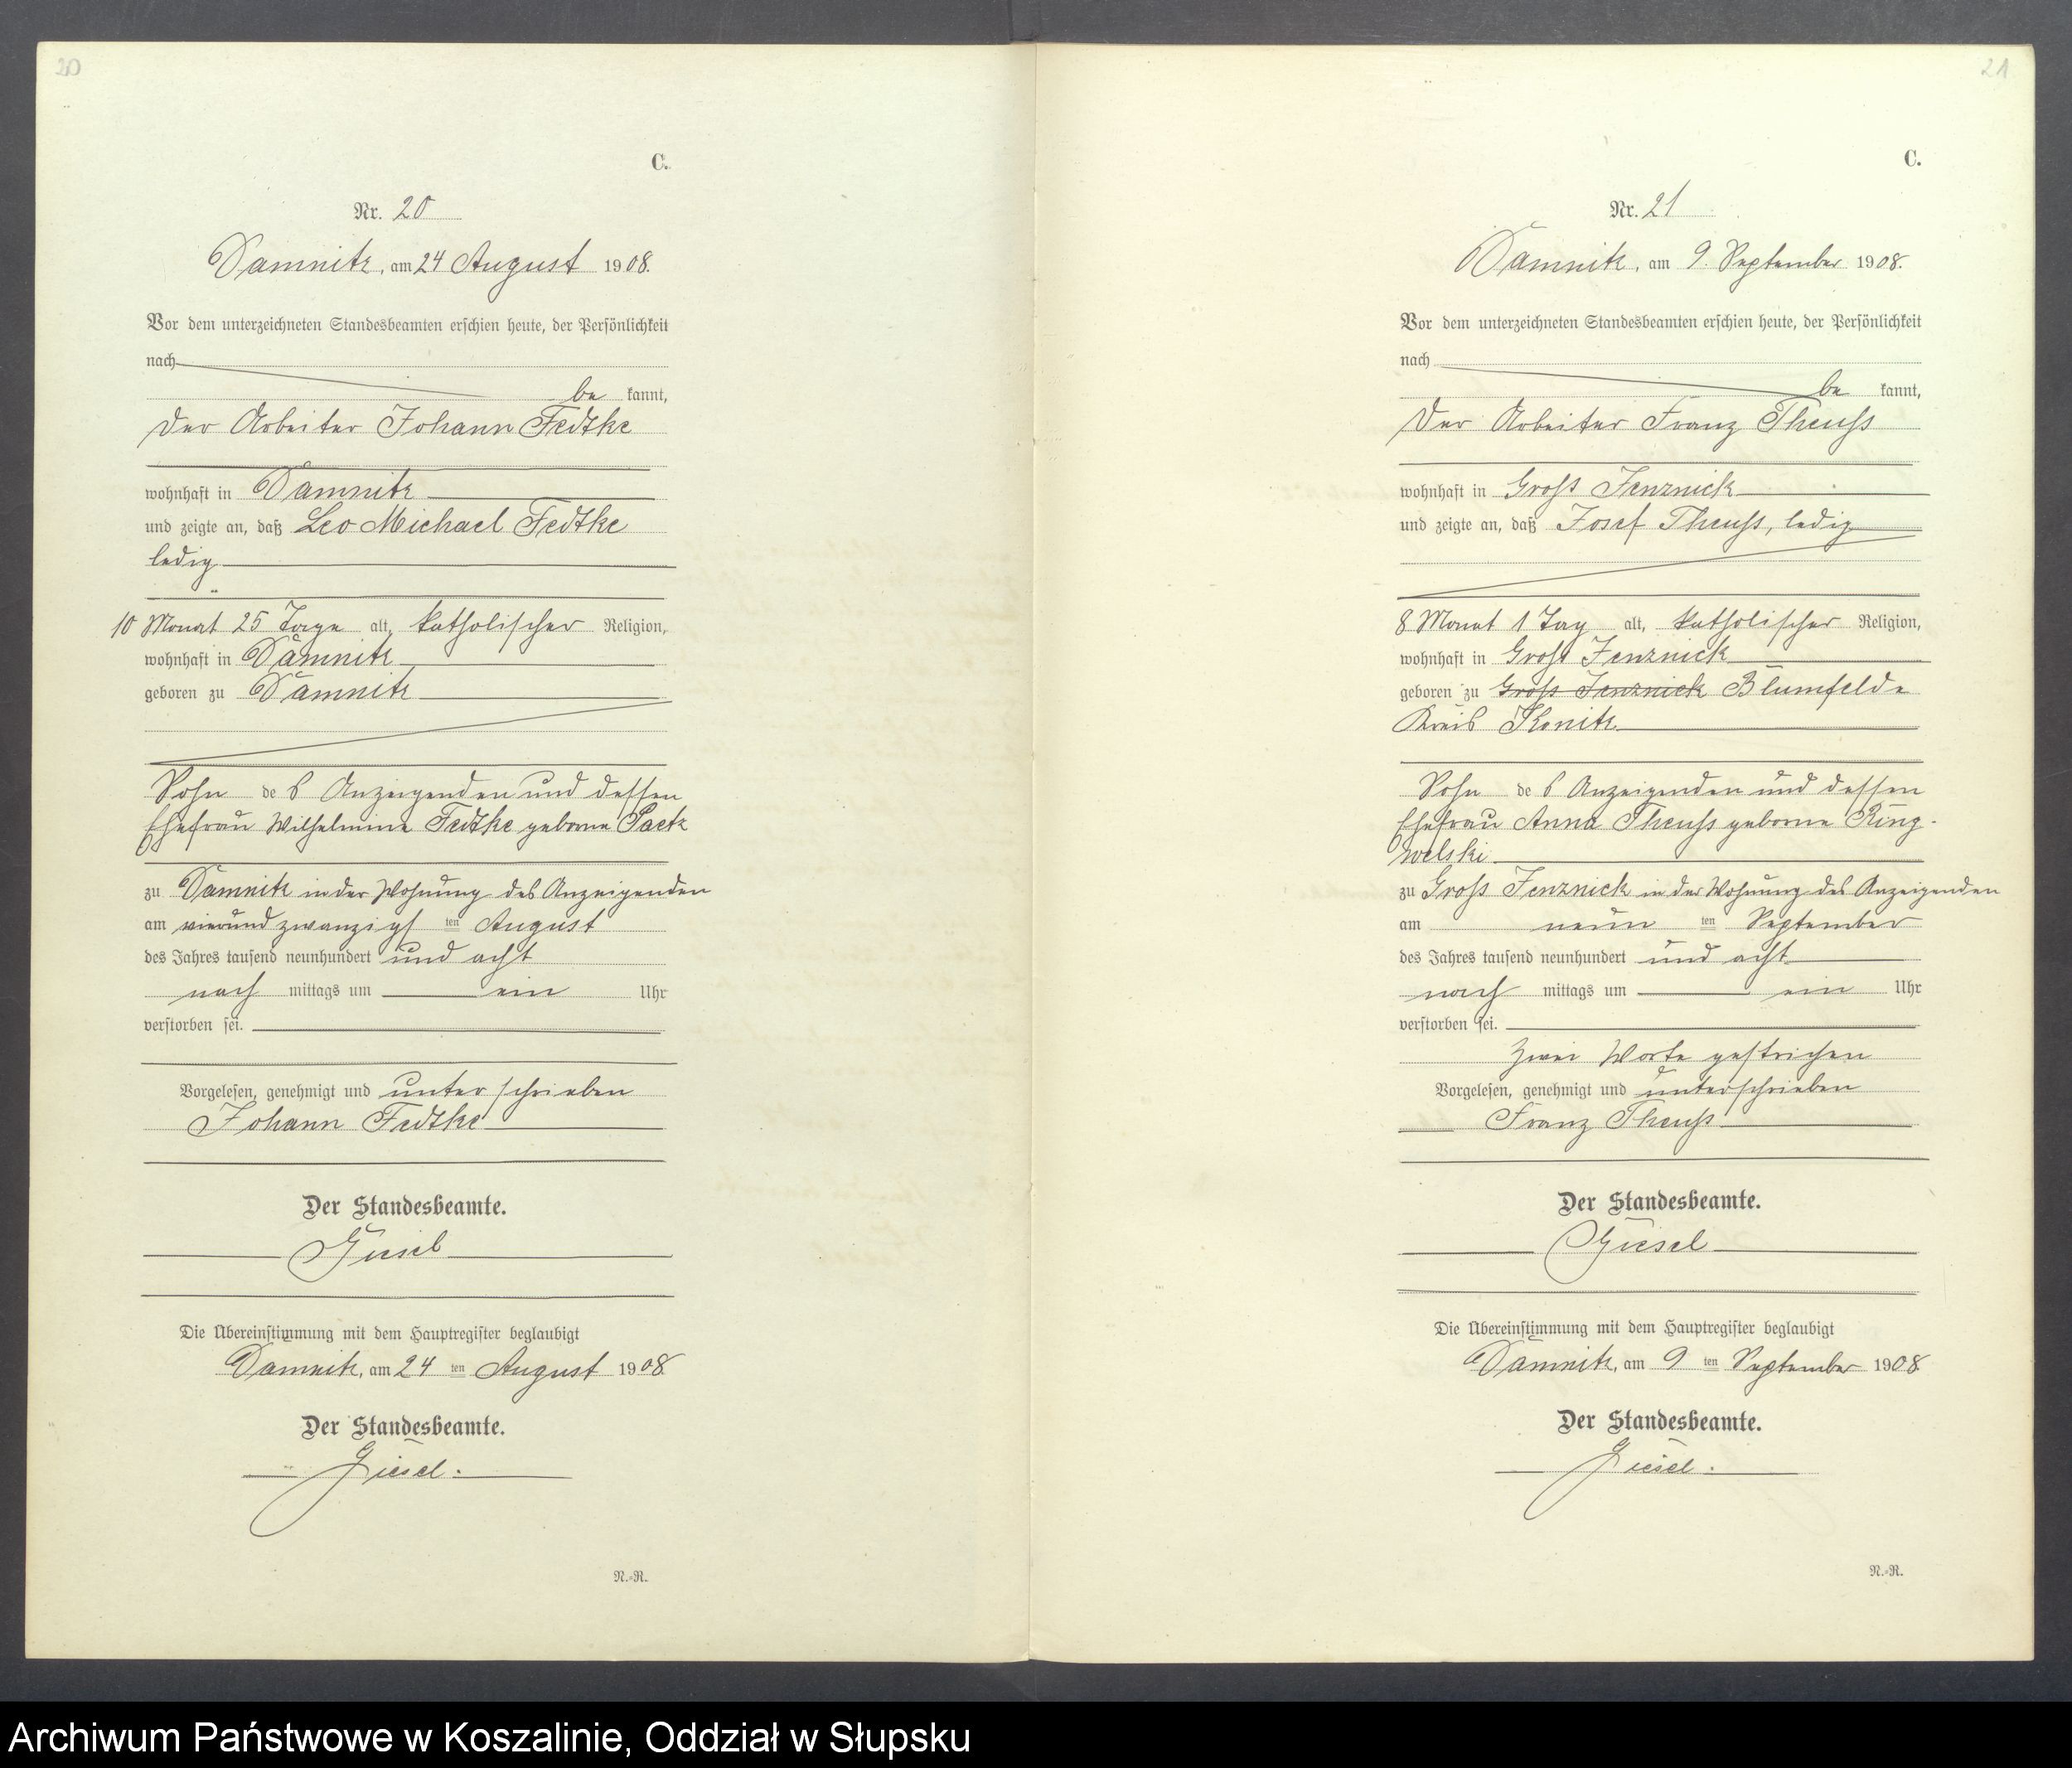 20
C.
Nr. 20
Damnitz, am 24 August 1908.
Vor dem unterzeichneten Standesbeamten erschien heute, der Persönlichkeit
nach
be kannt,
der Arbeiter Johann Fedtke
wohnhaft in Damnitz
und zeigte an, daß Leo Michael Fedtke
ledig
10 Monat 25 Tage alt, katholischer Religion,
wohnhaft in Damnitz
geboren zu Damnitz
Sohn des Anzeigenden und dessen
Ehefrau Wilhelmine Fedtke geborne Paetz
zu Damnitz in der Wohnung des Anzeigenden
am vierundzwanzigsten August
des Jahres tausend neunhundert und acht
nach mittags um ein Uhr
verstorben sei.
Vorgelesen, genehmigt und unterschrieben
Johann Fedtke
Der Standesbeamte.
Giesel
Die Übereinstimmung mit dem Hauptregister beglaubigt
Damnitz, am 24 ten August 1908
Der Standesbeamte.
Giesel.
N.-R.
21
C.
Nr. 21
Damnitz, am 9. September 1908.
Vor dem unterzeichneten Standesbeamten erschien heute, der Persönlichkeit
nach
be kannt,
der Arbeiter Franz Theuß
wohnhaft in Groß Jenznick
und zeigte an, daß Josef Theuß, ledig
8 Monat 1 Tag alt, katholischer Religion,
wohnhaft in Groß Jenznick
geboren zu Groß Jenznick Blumfelde
Kreis Konitz
Sohn des Anzeigenden und dessen
Ehefrau Anna Theuß geborne Ring-
welski
zu Groß Jenznick in der Wohnung des Anzeigenden
am neun ten September
des Jahres tausend neunhundert und acht
nach mittags um ein Uhr
verstorben sei.
Zwei Worte gestrichen
Vorgelesen, genehmigt und unterschrieben
Franz Theuß
Der Standesbeamte.
Giesel
Die Übereinstimmung mit dem Hauptregister beglaubigt
Damnitz, am 9 ten September 1908
Der Standesbeamte.
Giesel.
N.-R.
Archiwum Państwowe w Koszalinie, Oddział w Słupsku